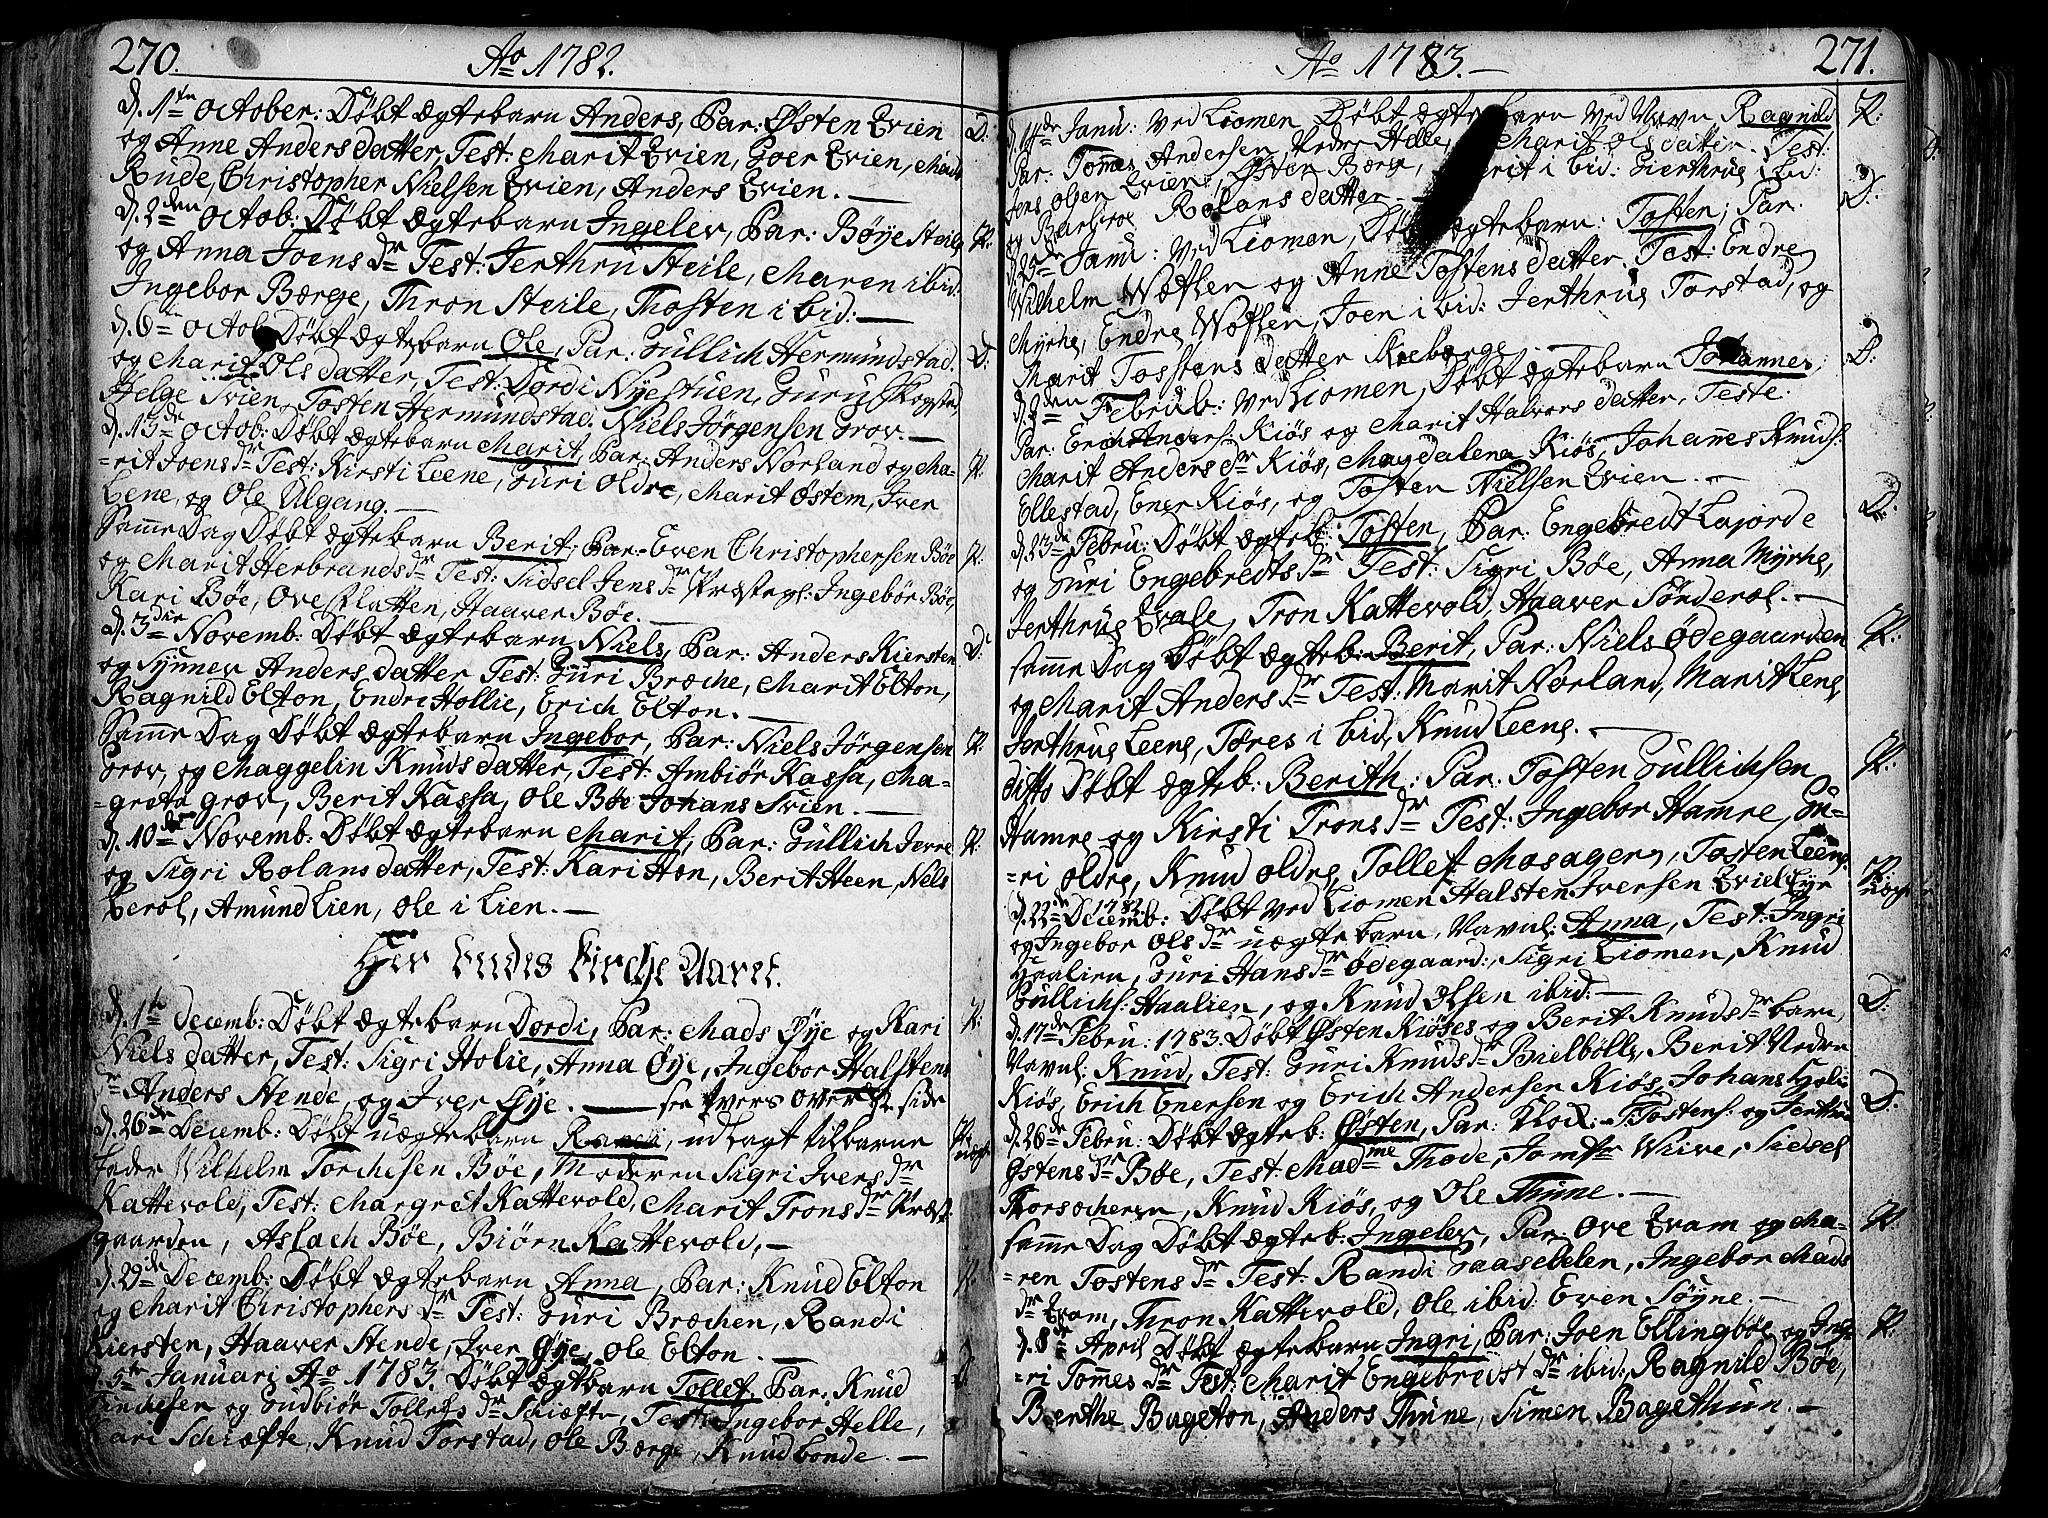 270. Ao 1782.
d. 1te october: Døbt ægtebarn Anders, Par: Østen Qvien D:
og Anne Andersdatter, Test: Marit Qvien, Goer Qvien, Mads
Rude, Christopher Nielsen Qvien, Anders Qvien. —
d. 2den octob: Døbt ægtebarn Ingelev, Par: Bøye Steile P:
og Anna Joens dr Test: Jerthru Steile, Maren ibid:
Ingebor Bærge, Thron Steile, Thosten i bid: —
d. 6te octob: Døbt ægtebarn Ole, Par: Gullich Hermundstad D:
og Marit Olsdatter, Test: Dordi Nyestuen, Guru Skogstad
Helge Qvien, Tosten Hermundstad. Niels Jørgensen Grov. —
d. 13de octob: Døbt ægtebarn Marit, Par: Anders Norland og Ma=
=rit Joens dr Test: Kirsti Leene, Guri Oldre, Marit Østem, Iver P:
Lene, og Ole Ulgang. —
Samme Dag Døbt ægtebarn Berit, Par: Even Christophersen Bøe P:
og Marit Herbrands dr Test: Sidsel Jens dr Præstegl: Ingebør Bøe,
Kari Bøe, Ove Flatten, Haaver Bøe. —
d. 3die Novemb: Døbt ægtebarn Niels, Par: Anders Kiersten D:
og Synnev Andersdatter Test: Guri Bræche, Marit Elton,
Ragnild Elton, Endre Hollie, Erich Elton. —
Samme Dag Døbt ægtebarn Ingebor, Par: Niels Jørgensen P:
Grov, og Maggelin Knudsdatter, Test: Ambiør Kassa, Ma=
=greta grov, Berit Kassa, Ole Bøe Johans Qvien. —
d. 10de Novemb: Døbt ægtebarn Marit, Par: Gullich Jerre P:
og Sigri Rolansdatter, Test: Kari Hon, Berit Heen, Niels
Berol, Amund Lien, Ole i Lien. —
Her Endes Kirche Aaret.
d. 1te Decemb: Døbt ægtebarn Dordi, Par: Mads Øye og Kari P:
Nielsdatter, Test: Sigri Holie, Anna Øye, Ingebor Halstens
dr Anders Stende, og Iver Øye. — see tvers over paa side
d. 26de Decemb: Døbt uægtebarn Randi, udlagt til barne P:
fader Wilhelm Torchesen Bøe, Moderen Sigri Ivers dr uægt
Kattevold, Test: Margret Kattevold, Marit Trons dr Præst
gaarden, Aslach Bøe, Biørn Kattevold, —
d. 29de Decemb: Døbt ægtebarn Anna, Par: Knud Elton P:
og Marit Christophers dr Test: Guri Bræchen, Randi
Kiersten, Haaver Stende, Iver Øye, Ole Elton. —
d. 5te Januari Ao 1783. Døbt ægtbarn Tollef, Par: Knud D:
Findchesen og Gudbiør Tollefs dr Schiæfte, Test: Ingebor Helle,
Kari Schiæfte, Knud Torstad, Ole Bærge, Knud bonde. —
Ao 1783. — 271.
d. 14de Janu: ved Liomen Døbt ægtebarn ved Navn Ragnild P:
Par: Tommes Andersen Helle, Marit Olsdatter. Test:
Jens olsen Qvien, Østen Bærge, Marit i bid: Gierthrus ibid:
og Barbroe Rolansdatter. —
d. 25de Janu: ved Liomen, Døbt ægtebarn: Tosten; Par. D:
Wilhelm Wøflen og Anne Tostensdatter. Test: Endre
Myrhe, Endre Wøflen, Joen i bid: Jerthrus Torstad, og
Marit Tostensdatter Kieberge. —
d. 2den Februb: ved Liomen, Døbt ægtebarn Johannes, D:
Par: Erich Anders: Kiøs og Marit Halvorsdatter, Teste:
Marit Anders dr Kiøs, Magdalena Kiøs, Johannes Knuds:
Ellestad, Ener Kiøs, og Tosten Nielsen Qvien. —
d. 23de Febru: Døbt ægteb: Tosten, Par: Engebredt Lajorde D:
og Guri Engebredts dr Test: Sigri Bøe, Anna Myrhe,
Jerthrus Qvale, Tron Kattevold, Haaver Sønderol. —
samme Dag Døbt ægteb: Berit, Par: Niels Ødegaarden P:
og Marit Anders dr Test: Marit Norland, Marit Lene,
Jerthrus Leene, Tøres i bid, Knud Leene. —
ditto Døbt ægteb: Berith: Par: Tosten Gullichsen P:
Hamre og Kirsti Trons dr Test: Ingebor Hamre, Gu=
=ri oldre, Knud oldre, Tollef Mosager, Tosten Leene.
d. 22de Decemb: 1782. Døbt ved Liomen Halsten Iversen P:
og Ingebor Ols dr uægtebarn, Navnl: Anna, Test: Ingri uægte
Haalien, Guri Hans dr Ødegaard:, Sigri Liomen, Knud
Gullichs: Haalien, og Knud Olsen ibid: —
d. 17de Febru: 1783. Døbt Østen Kiøses og Berit Knuds dr barn, D:
Navnl: Knud, Test: Guri Knuds dr Bielbølle, Berit Nedre
Kiøs, Erich Enersen og Erich Andersen Kiøs, Johans Holi
d. 26de Febru: Døbt ægteb: Østen, Par: Klock: Tostens: og Jerthru D:
Østens dr Bøe, Test: Madme Thode, Jomfr Wiive, Sidsel
Thorsocheren, Knud Kiøs, og Ole Thune. —
samme Dag Døbt ægteb: Ingelev, Par Ove Qvam og Ma= P:
=ren Tostens dr Test: Randi Gaasedelen, Ingebor Mads
dr Qvam, Thron Kattevold, Ole ibid: Even Søyne. —
d. 8de April Døbt ægtebarn Ingri, Par: Joen Ellingbøe og Ing= P:
=ri Tommes dr Test: Marit Engebredst dr ibid:, Ragnild Bøe,
Berthe Bageton, Anders Thune, Simen Bagethun. —